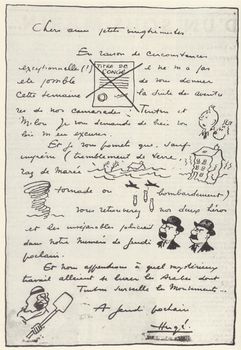 Chers amis petits vingtièmistes
En raison de circonstances
exceptionnelles (!) il ne m'a pas
TITRE DE
CONGÉ
été possible de vous donner
cette semaine la suite des aventu
res de nos camarades Tintin et
Milou. Je vous demande de bien vou
loir m'en excuser.
Et je vous promets que, sauf
imprévu (tremblement de terre,
raz de marée
tornade ou bombardement)
vous retrouverez nos deux héros
et les policiers
dans notre numéro de Jeudi
prochain.
Et nous apprendrons à quel mystérieux
travail allaient se livrer les Arabes dont
Tintin surveille les mouvements...
A jeudi prochain
Hergé